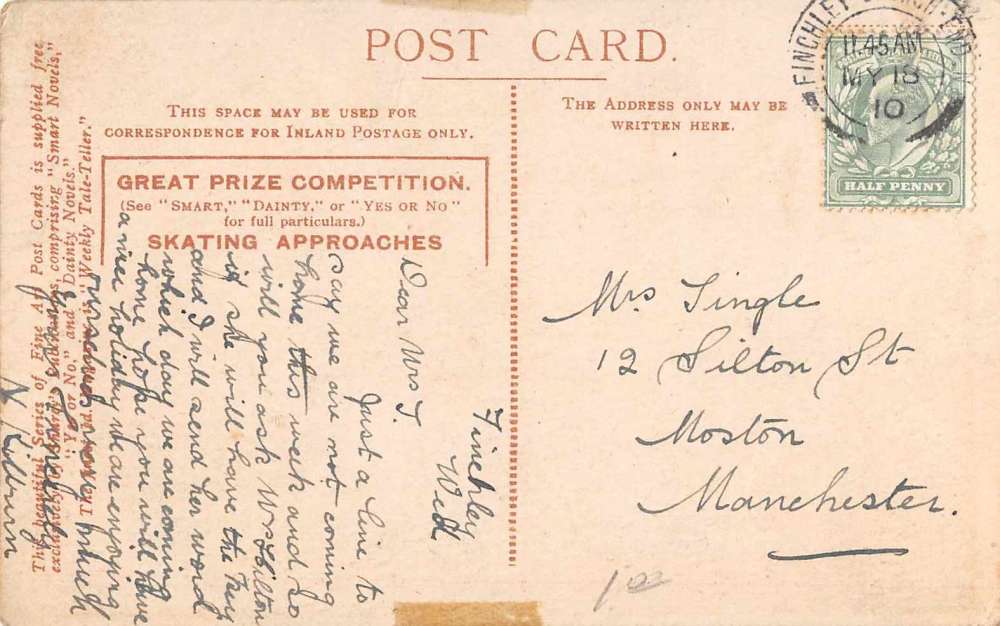 POST CARD.
THIS SPACE MAY BE USED FOR
CORRESPONDENCE FOR INLAND POSTAGE ONLY.
THE ADDRESS ONLY MAY BE
WRITTEN HERE.
GREAT PRIZE COMPETITION.
(See "SMART," "DAINTY," or "YES OR NO"
for full particulars.)
SKATING APPROACHES
This beautiful Series of Fine Art Post Cards is supplied free
exclusively by comprising "Smart Novels,"
"Yes or No," and "Dainty Novels,"
"Weekly Tale-Teller."
FINCHLEY
11.45 AM
MY 18
10
HALF PENNY
Finchley
Wed
Dear Mrs S.
Just a line to
say we are not coming
home this week and so
will you ask Mrs Hilton
if she will have the key
and I will send her word
which day we are coming
home hope you will have
a nice holiday we are enjoying
N Kilburn
Mrs Single
12 Silton St
Moston
Manchester.
1.00